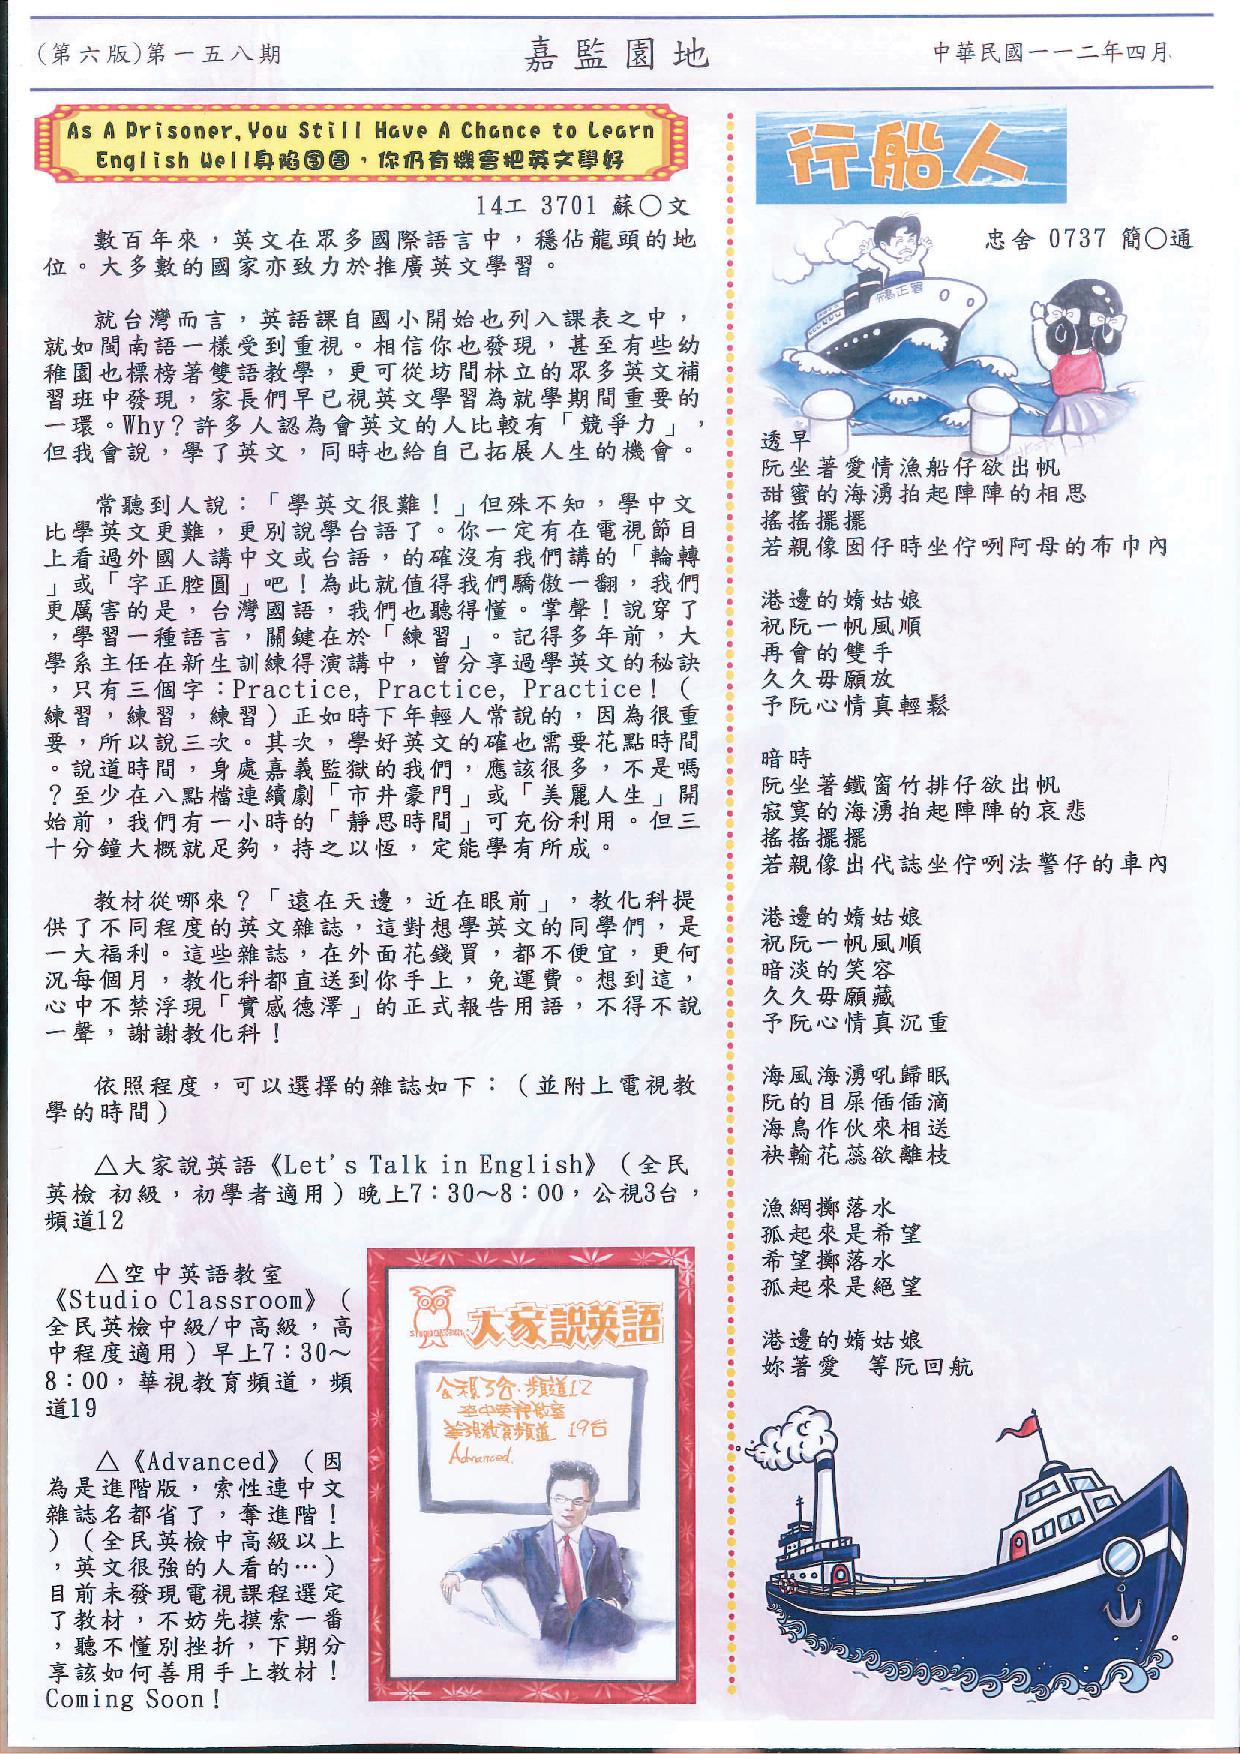 (第六版)第一五八期
嘉監園地
中華民國一一二年四月
As A Prisoner, You Still Have A Chance to Learn
English Well身陷囹圄，你仍有機會把英文學好
14工 3701 蘇〇文
數百年來，英文在眾多國際語言中，穩佔龍頭的地
位。大多數的國家亦致力於推廣英文學習。
就台灣而言，英語課自國小開始也列入課表之中，
就如閩南語一樣受到重視。相信你也發現，甚至有些幼
稚園也標榜著雙語教學，更可從坊間林立的眾多英文補
習班中發現，家長們早已視英文學習為就學期間重要的
一環。Why？許多人認為會英文的人比較有「競爭力」，
但我會說，學了英文，同時也給自己拓展人生的機會。
常聽到人說：「學英文很難！」但殊不知，學中文
比學英文更難，更別說學台語了。你一定有在電視節目
上看過外國人講中文或台語，的確沒有我們講的「輪轉
」或「字正腔圓」吧！為此就值得我們驕傲一翻，我們
更厲害的是，台灣國語，我們也聽得懂。掌聲！說穿了
，學習一種語言，關鍵在於「練習」。記得多年前，大
學系主任在新生訓練得演講中，曾分享過學英文的秘訣
，只有三個字：Practice, Practice, Practice！（
練習，練習，練習）正如時下年輕人常說的，因為很重
要，所以說三次。其次，學好英文的確也需要花點時間
。說道時間，身處嘉義監獄的我們，應該很多，不是嗎
？至少在八點檔連續劇「市井豪門」或「美麗人生」開
始前，我們有一小時的「靜思時間」可充份利用。但三
十分鐘大概就足夠，持之以恆，定能學有所成。
教材從哪來？「遠在天邊，近在眼前」，教化科提
供了不同程度的英文雜誌，這對想學英文的同學們，是
一大福利。這些雜誌，在外面花錢買，都不便宜，更何
況每個月，教化科都直送到你手上，免運費。想到這，
心中不禁浮現「實感德澤」的正式報告用語，不得不說
一聲，謝謝教化科！
依照程度，可以選擇的雜誌如下：（並附上電視教
學的時間）
△大家說英語《Let's Talk in English》（全民
英檢 初級，初學者適用）晚上7：30～8：00，公視3台，
頻道12
△空中英語教室
《Studio Classroom》（
全民英檢中級/中高級，高
中程度適用）早上7：30～
8：00，華視教育頻道，頻
道19
△《Advanced》（因
為是進階版，索性連中文
雜誌名都省了，奪進階！
）（全民英檢中高級以上
，英文很強的人看的…）
目前未發現電視課程選定
了教材，不妨先摸索一番
，聽不懂別挫折，下期分
享該如何善用手上教材！
Coming Soon！
大家說英語
公視3台．頻道12
空中英語教室
華視教育頻道 19台
Advanced.
行船人
忠舍 0737 簡〇通
矯正署
透早
阮坐著愛情漁船仔欲出帆
甜蜜的海湧拍起陣陣的相思
搖搖擺擺
若親像囡仔時坐佇咧阿母的布巾內
港邊的媠姑娘
祝阮一帆風順
再會的雙手
久久毋願放
予阮心情真輕鬆
暗時
阮坐著鐵窗竹排仔欲出帆
寂寞的海湧拍起陣陣的哀悲
搖搖擺擺
若親像出代誌坐佇咧法警仔的車內
港邊的媠姑娘
祝阮一帆風順
暗淡的笑容
久久毋願藏
予阮心情真沉重
海風海湧吼歸眠
阮的目屎插插滴
海鳥作伙來相送
袂輸花蕊欲離枝
漁網擲落水
孤起來是希望
希望擲落水
孤起來是絕望
港邊的媠姑娘
妳著愛　等阮回航